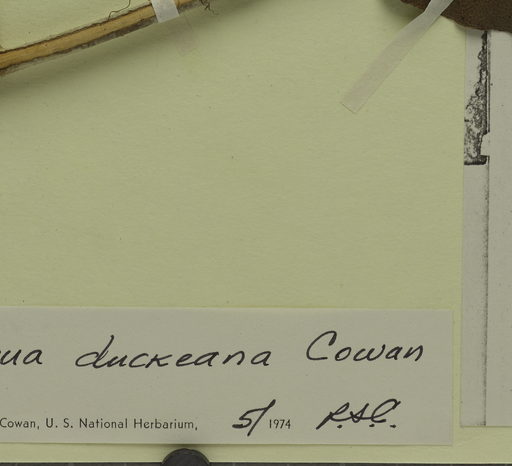 ua duckeana Cowan
Cowan, U. S. National Herbarium, 5/ 1974 R.S.C.